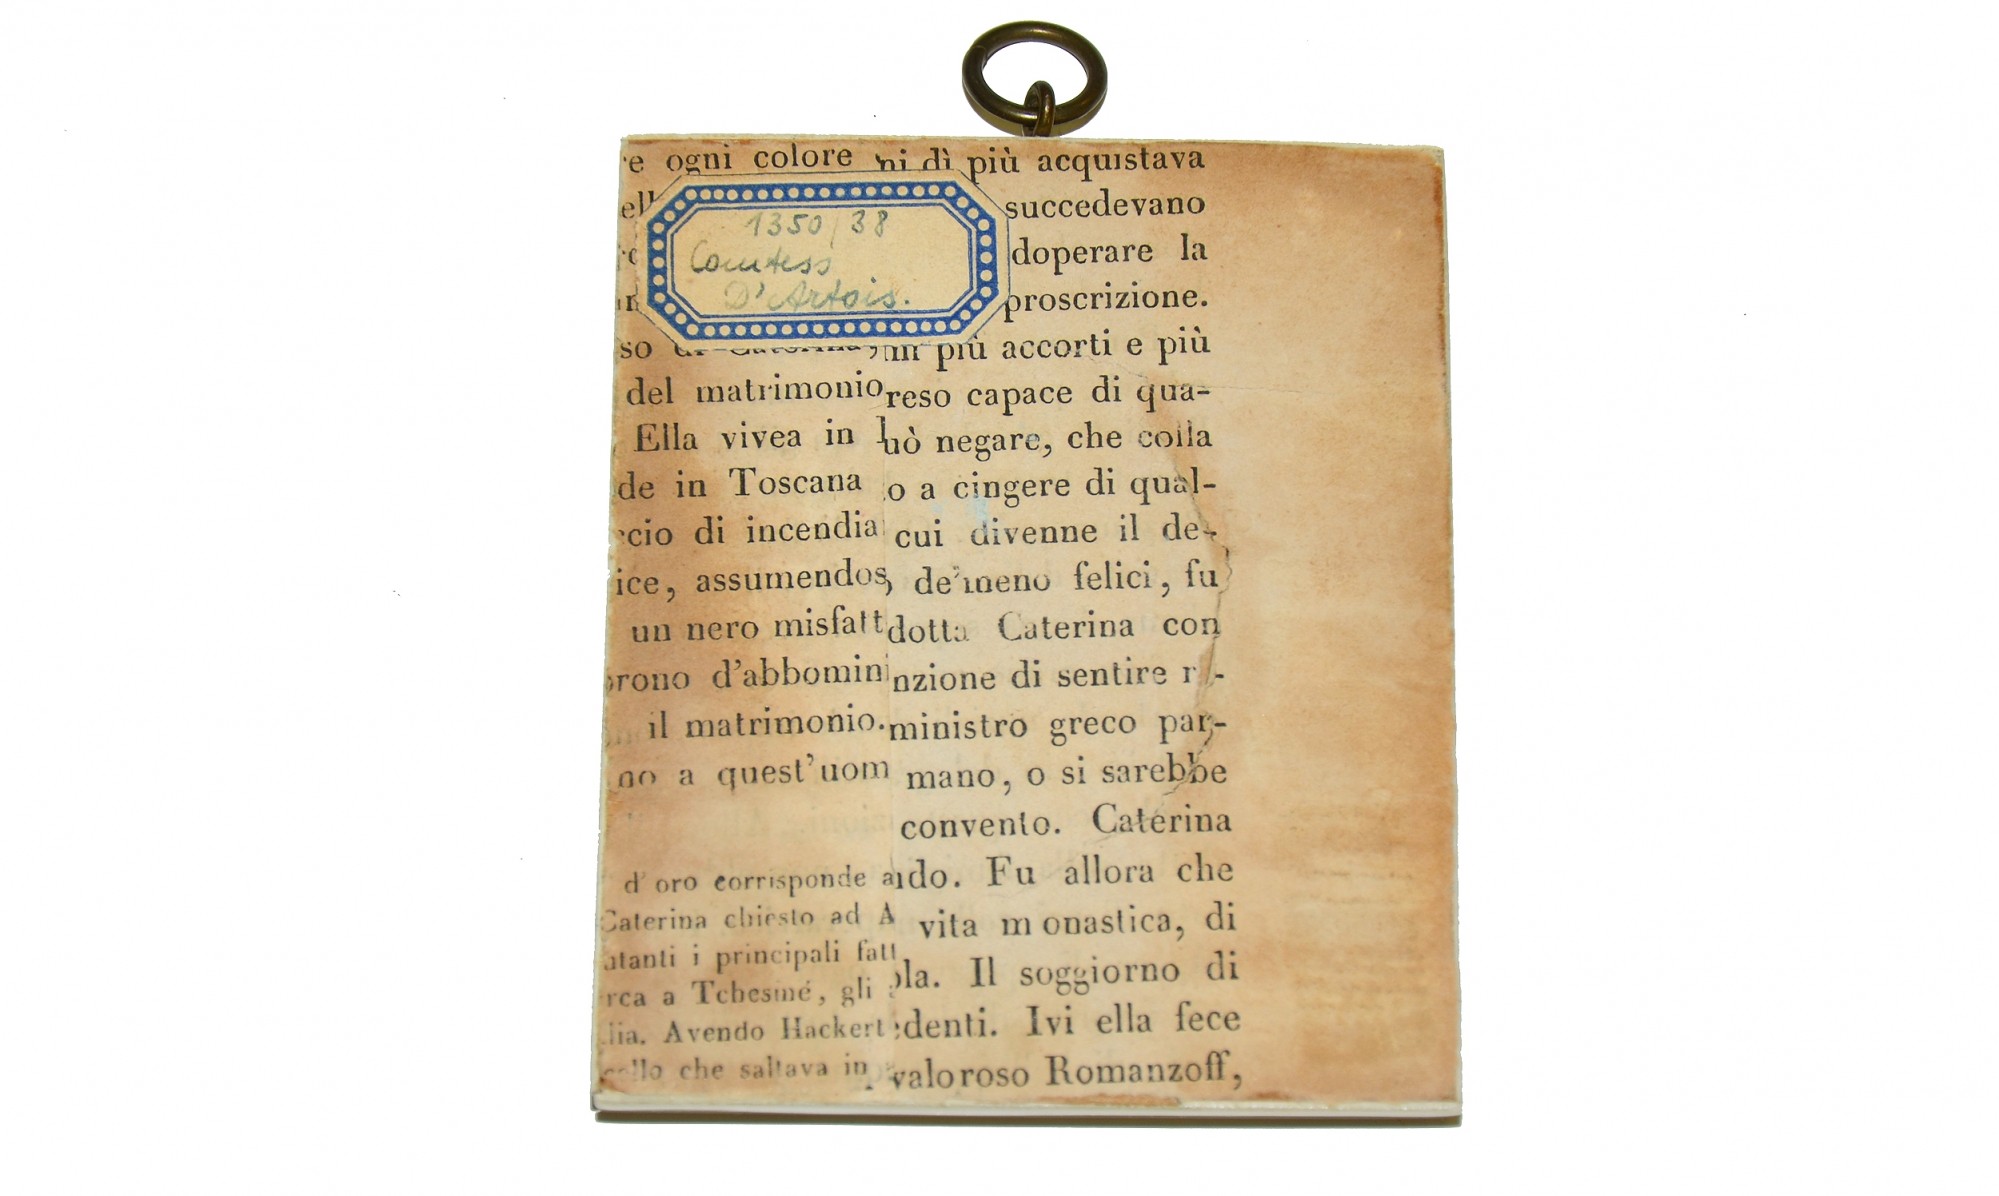 1350/38
Comtess
D'Artois.
e ogni colore
del matrimonio
Ella vivea in
de in Toscana
cio di incendia
ice, assumendos
un nero misfatt
rono d'abbomin
il matrimonio.
no a quest'uom
d'oro corrisponde a
Caterina chiesto ad A
tanti i principali fatt
rca a Tchesmé, gli
lia. Avendo Hackert
che saltava in
ni dì più acquistava
succedevano
doperare la
proscrizione.
più accorti e più
reso capace di qua-
uò negare, che colla
o a cingere di qual-
cui divenne il de-
de' meno felici, fu
dotta Caterina con
nzione di sentire
ministro greco par-
mano, o si sarebbe
convento. Caterina
do. Fu allora che
vita monastica, di
la. Il soggiorno di
denti. Ivi ella fece
valoroso Romanzoff,